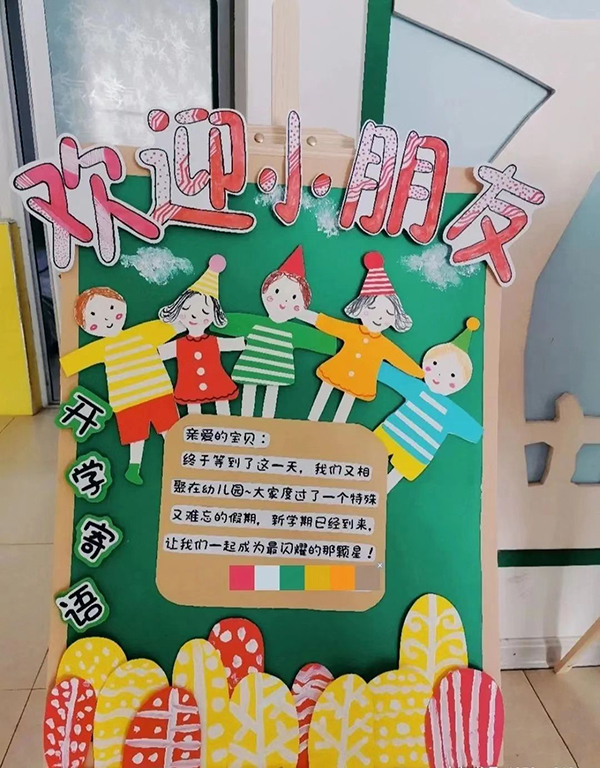 欢迎小朋友
开学寄语
亲爱的宝贝：
终于等到了这一天，我们又相
聚在幼儿园~大家度过了一个特殊
又难忘的假期，新学期已经到来，
让我们一起成为最闪耀的那颗星！